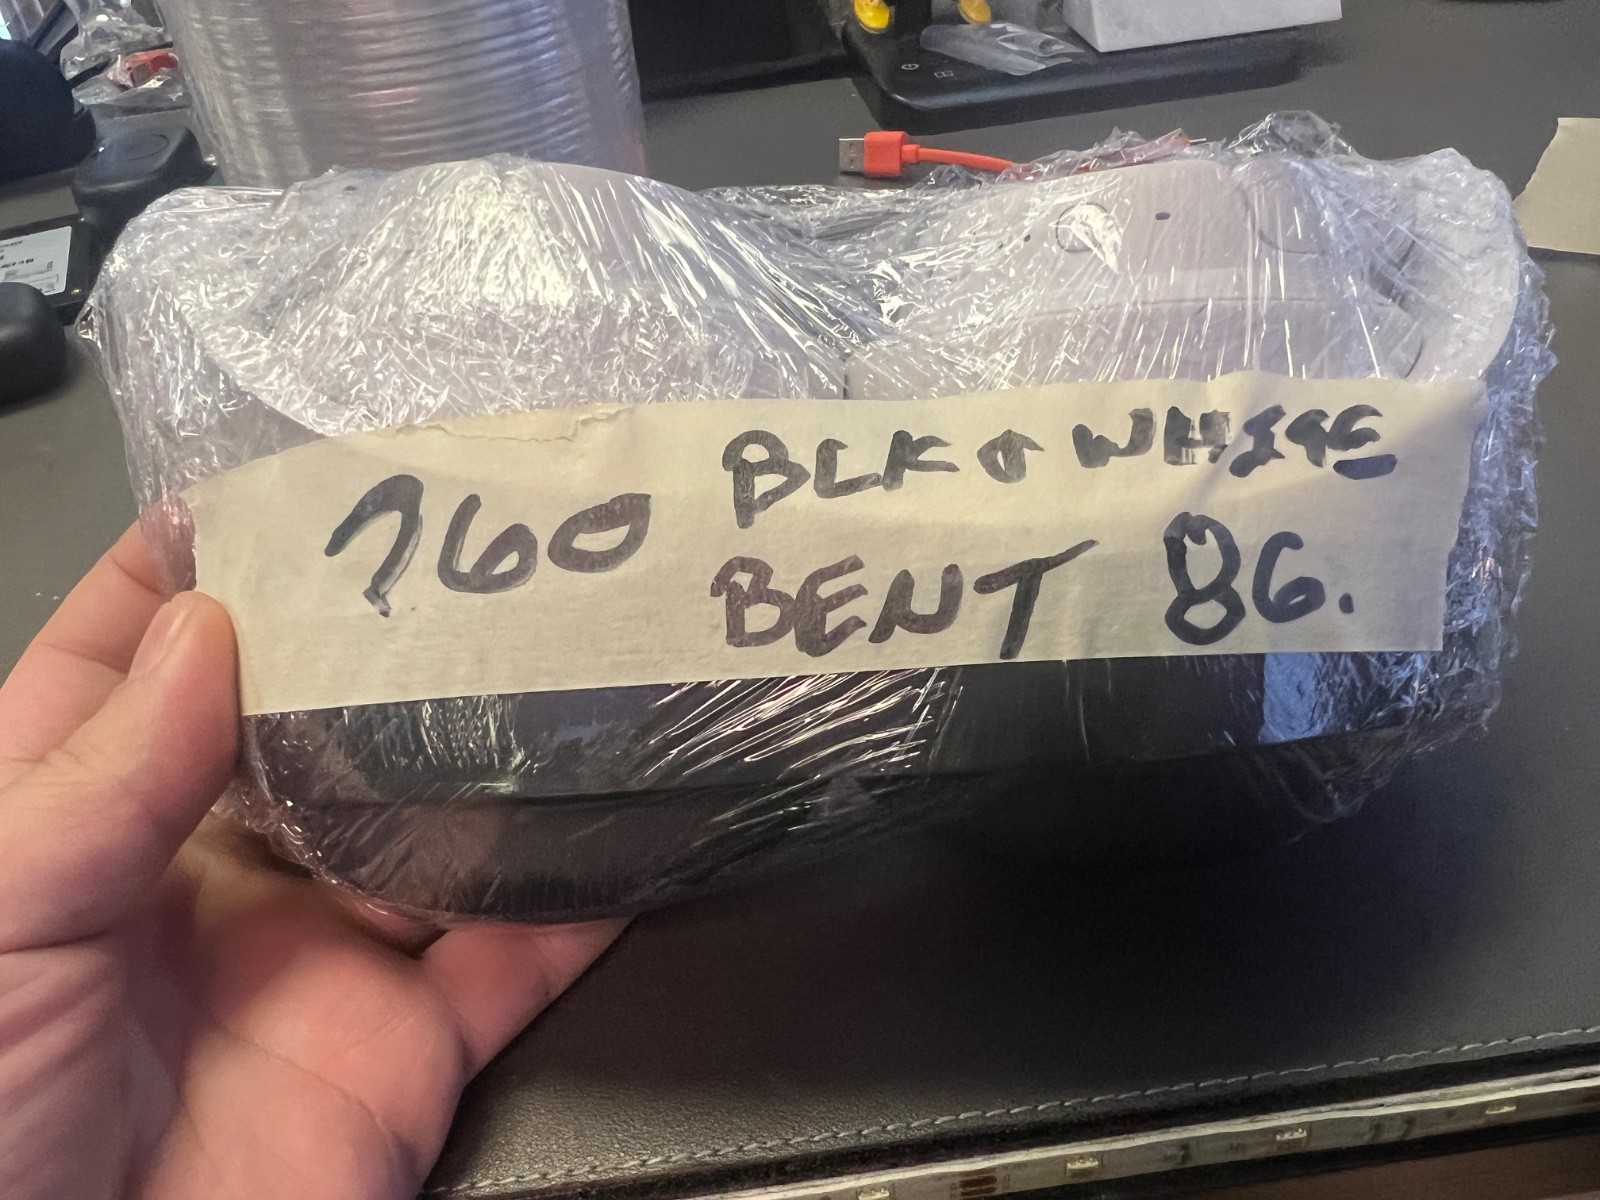 760
BLK & WHITE
BENT 86.